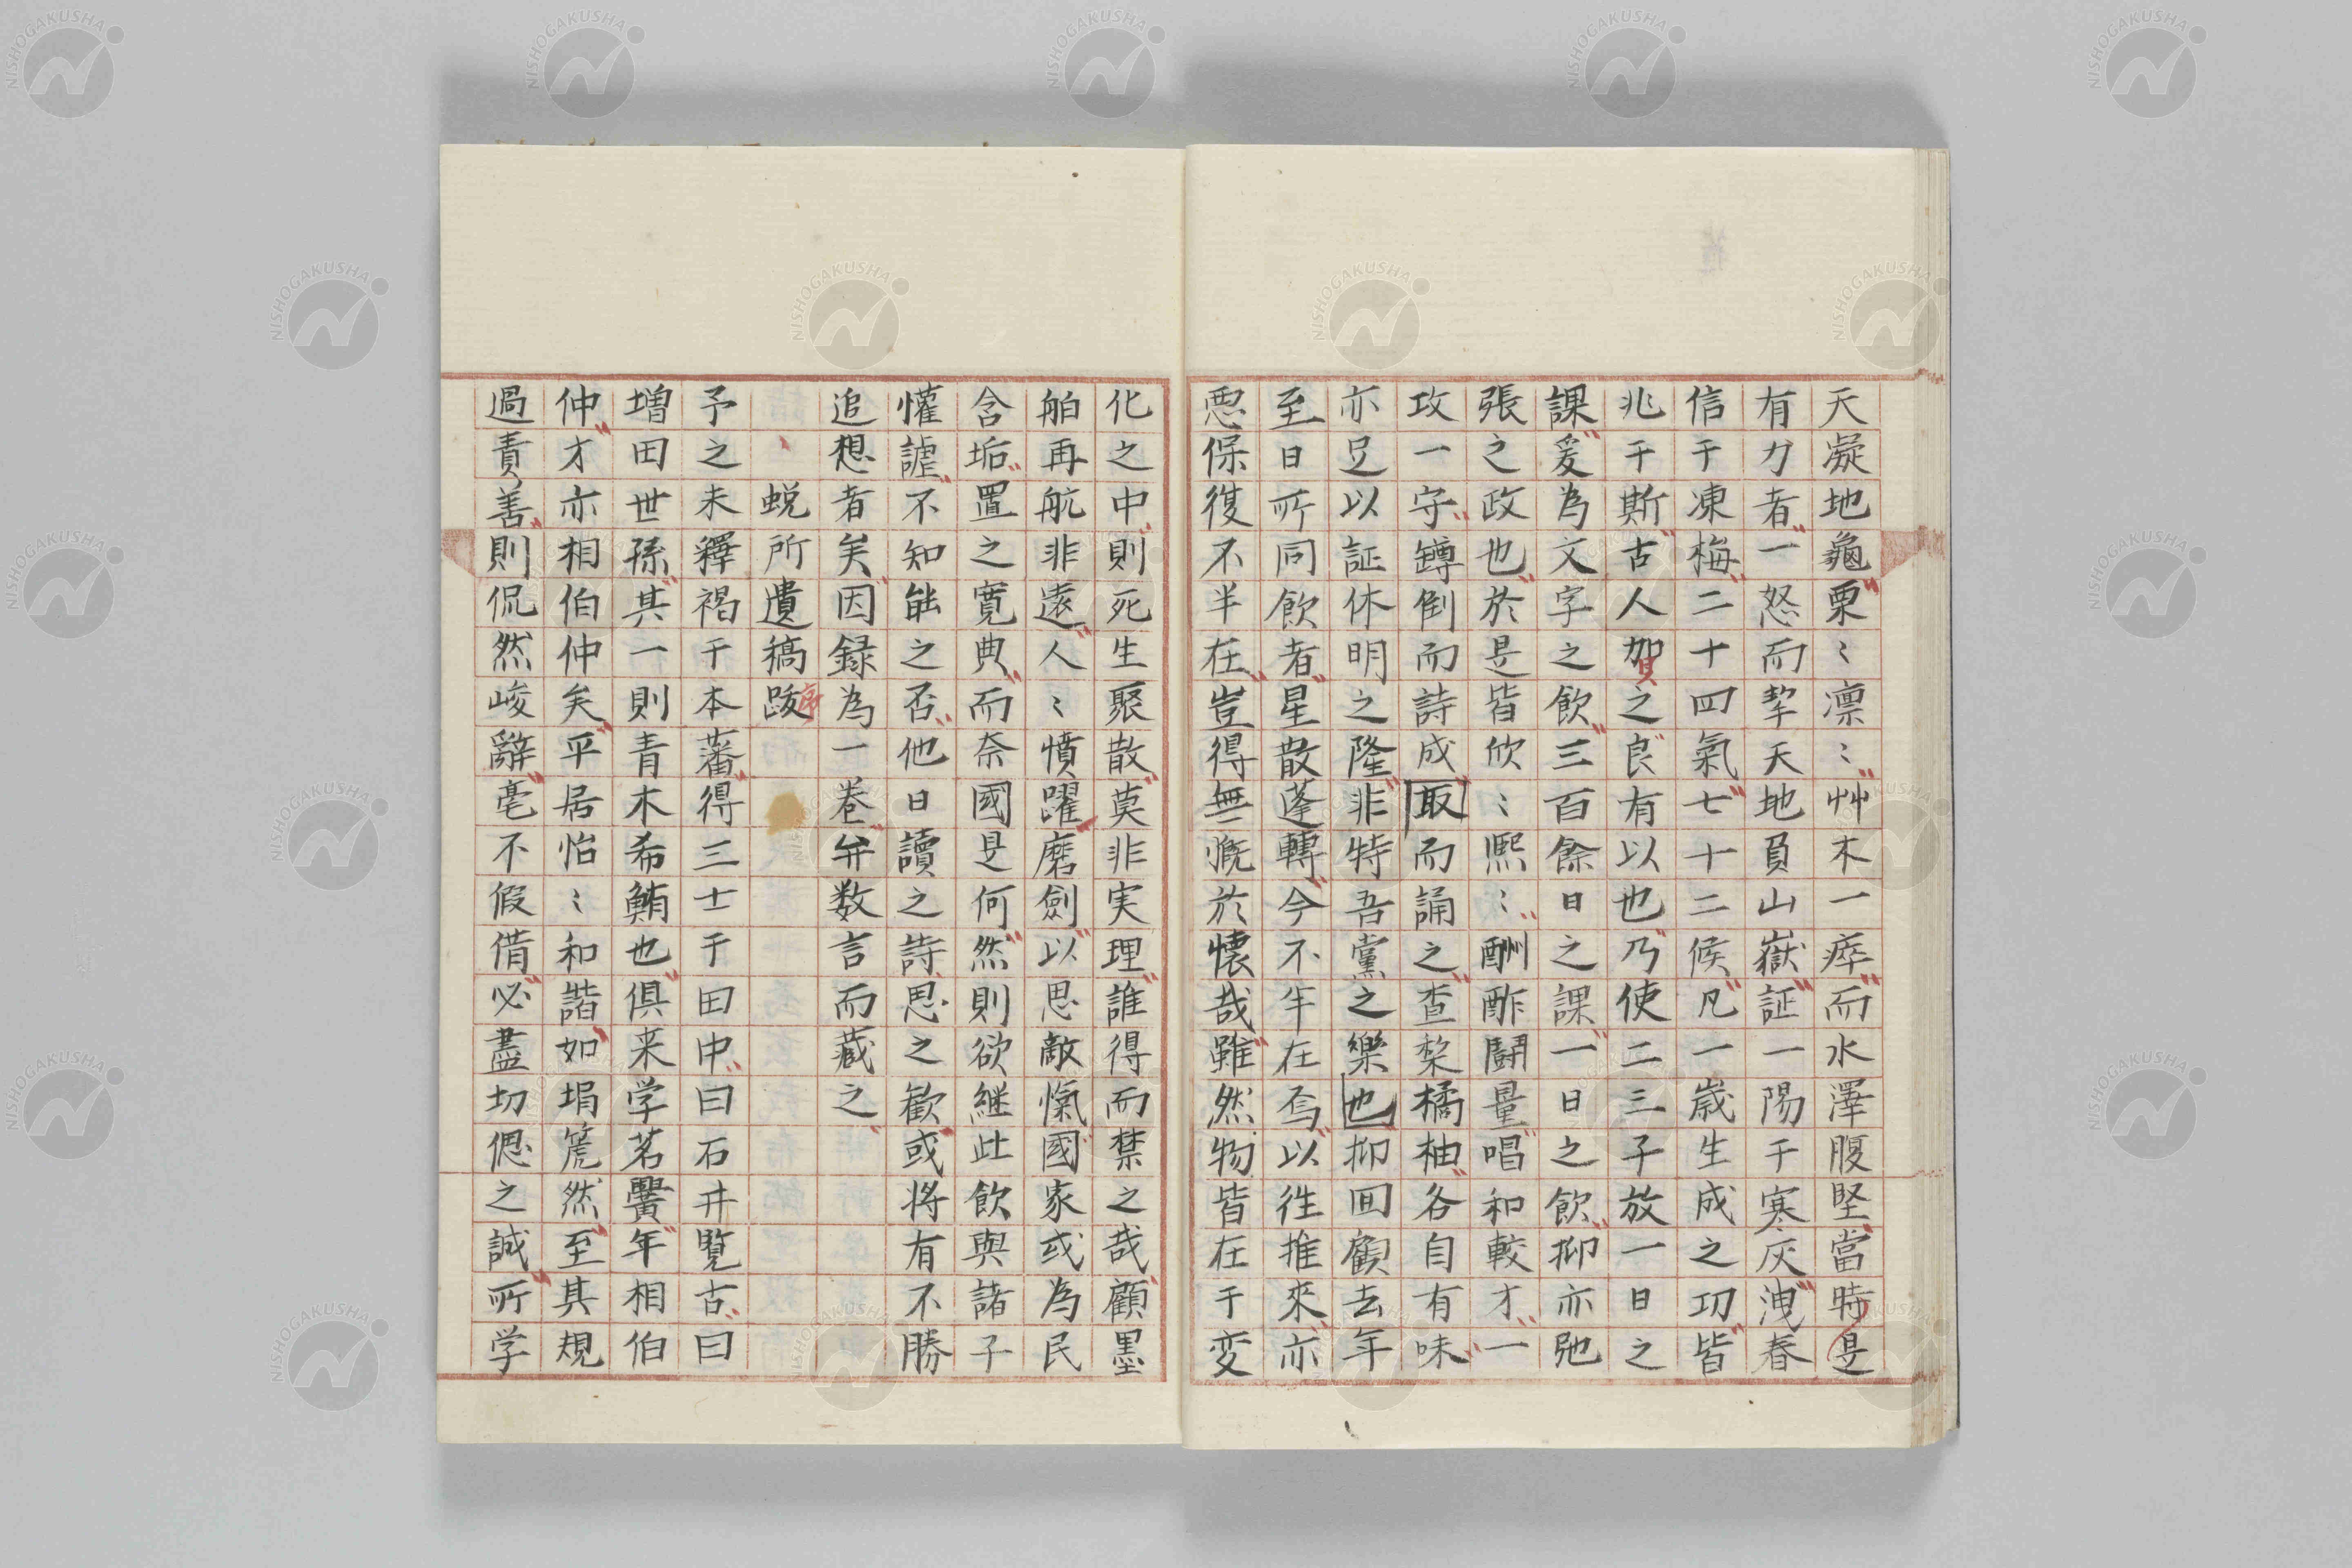 天凝地龜栗〻凛〻艸木一瘁而水澤腹堅當時是
有力者一怒而挈天地負山嶽証一陽于寒灰洩春
信于凍梅二十四氣七十二候凡一歳生成之功皆
兆于斯古人賀之良有以也乃使二三子放一日之
課爰為文字之飲三百餘日之課一日之飲抑亦弛
張之政也於是皆欣〻熈〻酬酢鬪量唱和較才一
攻一守罇倒而詩成取而誦之査棃橘柚各自有味
亦足以証休明之隆非特吾黨之樂也抑回顧去年
至日所同飲者星散蓬轉今不半在焉以徃推來亦
恐保復不半在豈得無慨於懐哉雖然物皆在于変
化之中則死生聚散莫非実理誰得而禁之哉顧墨
舶再航非遠人〻憤躍磨劍以思敵愾國家或為民
含垢置之寛典而奈國是何然則欲継此飲與諸子
懽謔不知能之否他日讀之詩思之歡或将有不勝
追想者矣因録為一巻弁数言而藏之
蜕所遺稿跋序
予之未釋褐于本藩得三士于田中曰石井覧古曰
増田世孫其一則青木希鮪也倶来学茗黌年相伯
仲才亦相伯仲矣平居怡〻和諧如塤篪然至其規
過責善則侃然峻辭毫不假借必盡切偲之誠所学